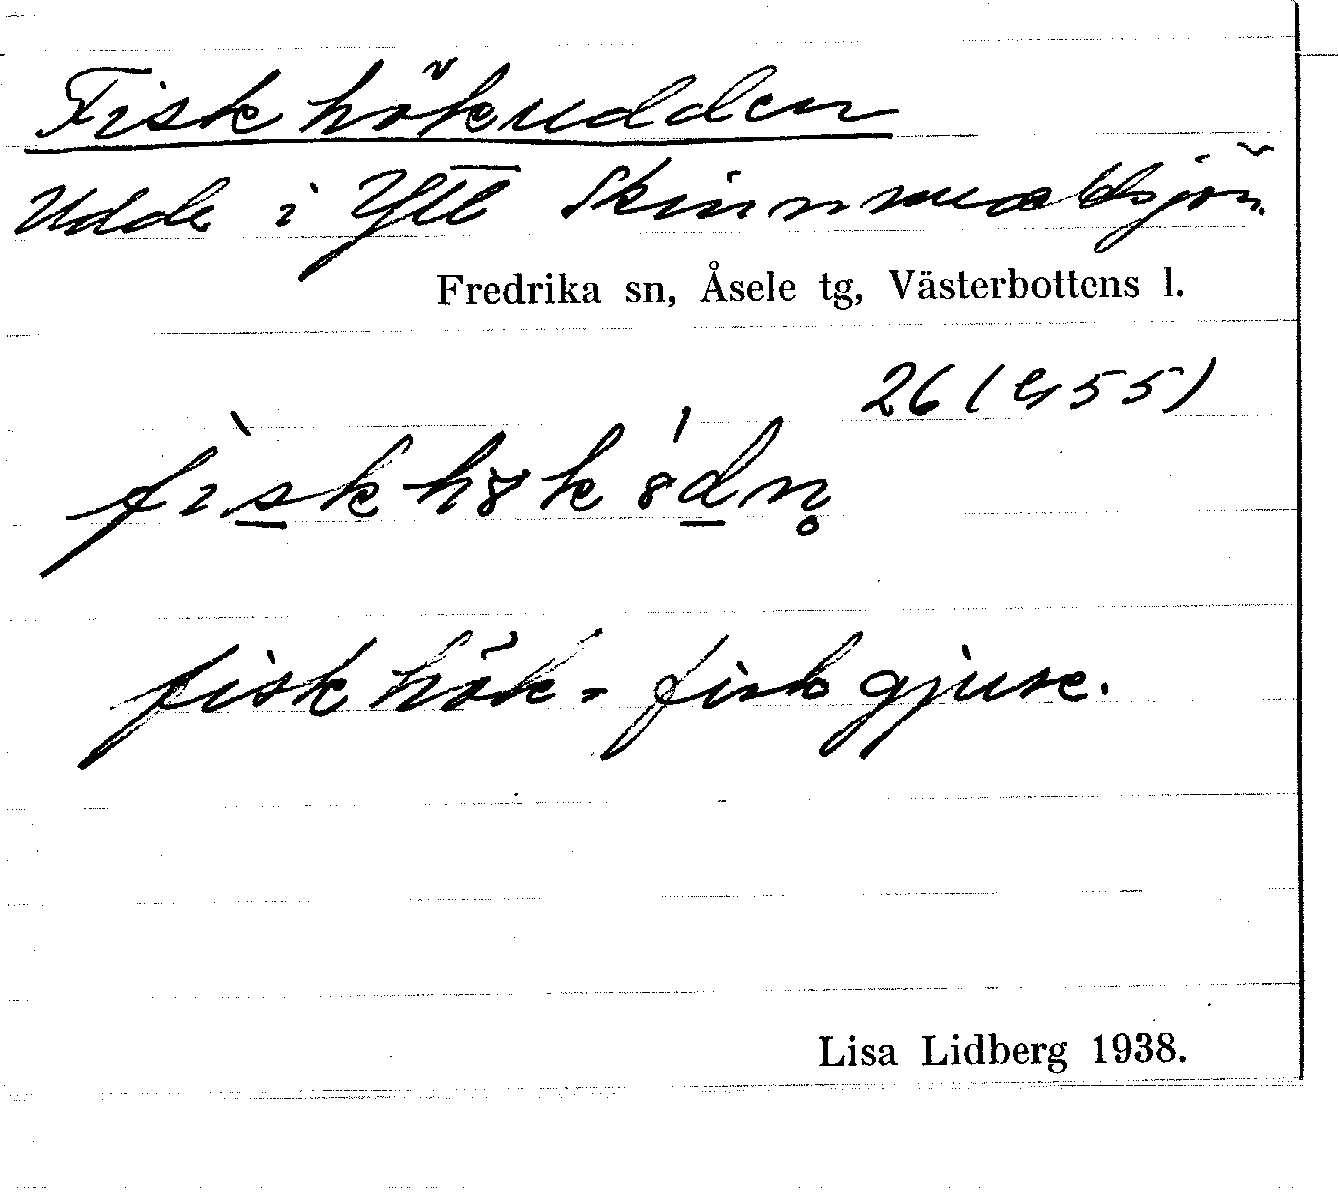 Fiskhökudden
Udde i Ytt Skinnmuddsjön.
Fredrika sn, Åsele tg, Västerbottens l.
26 (G 55)
fìskhökö́dn̥
fiskhök = fiskgjuse.
Lisa Lidberg 1938.